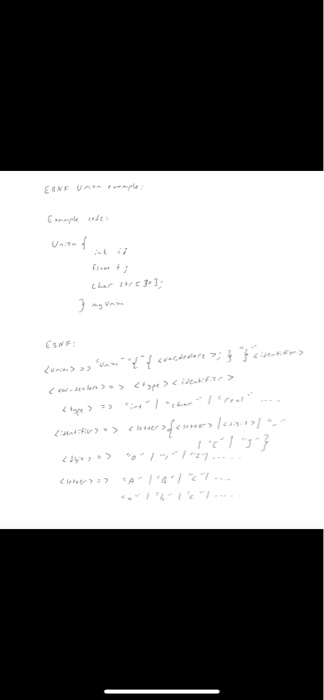 EBNF Union example:
Example code:
Union {
int i;
float f;
char str[30];
} myUnion
EBNF:
<union> => "Union" "{" { <var_declare>; } "}" <identifier>
<var_declare> => <type> <identifier>
<type> => "int" | "char" | "real" ....
<identifier> => <letter> { <letter> | <digit> | "_"
| "[" | "]" }
<digit> => "0" | "1" | "2" | .....
<letter> => "A" | "B" | "C" | ....
"a" | "b" | "c" | .....